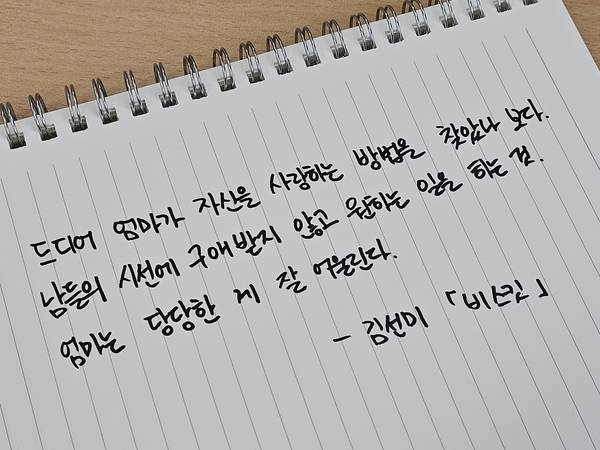 드디어 엄마가 자신을 사랑하는 방법을 찾았나 보다.
남들의 시선에 구애받지 않고 원하는 일을 하는 것.
엄마는 당당한 게 잘 어울린다.
- 김선미 「비스킷」